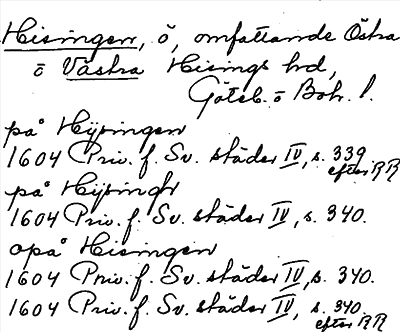 Hisingen, ö, omfattande Östra
o Västra Hisings hd,
Göteb. o Boh. l.
på Hijsingen
1604 Priv. f. Sv. städer IV, s. 339
efter RR
på Hijsingh
1604 Priv. f. Sv. städer IV, s. 340.
opå Hisingen
1604 Priv. f. Sv. städer IV, s. 340.
1604 Priv. f. Sv. städer IV, s. 340.
efter RR